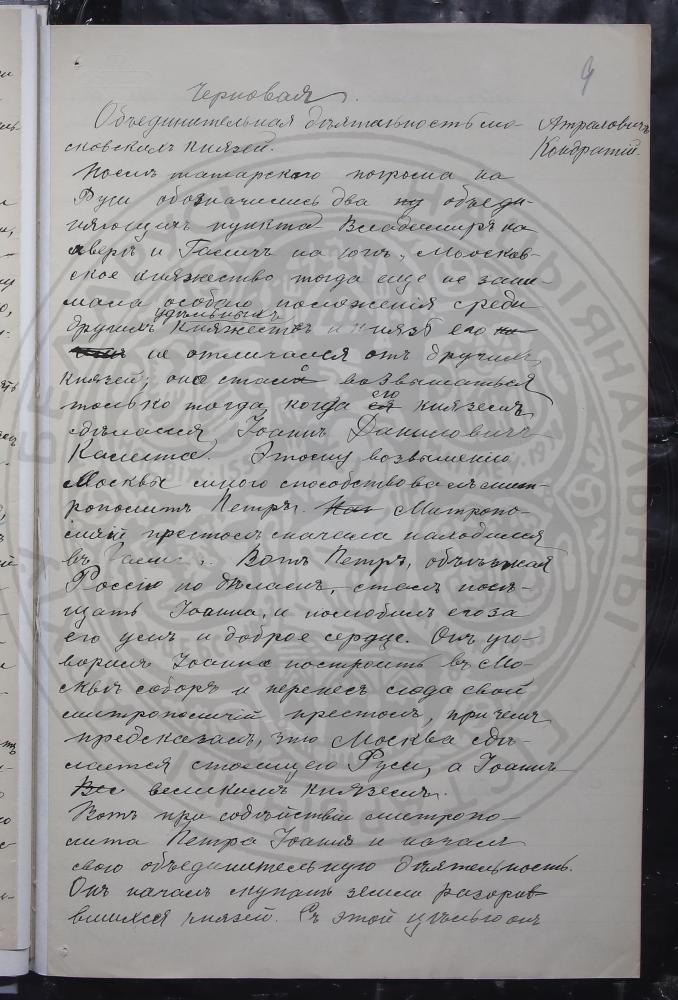 9
Черновая.
Объединительная дѣятельность мо-
сковскихъ князей.
Атрахович
Кондратій.
Послѣ татарскаго погрома на
Руси обозначились два объеди-
няющихъ пункта Владимиръ на
сѣверѣ и Галичъ на югѣ, Московс-
ское княжество тогда еще не зани-
мала особаго положенія среди
другихъ удѣльныхъ княжествъ и князь его
не отличался отъ другихъ
князей; оно стало возвышаться
только тогда, когда его княземъ
сдѣлался Іоаннъ Даниловичъ
Калита. Этому возвышенію
Москвы много способствовалъ мит-
рополитъ Петръ. Митропо-
личій престолъ сначала находился
въ Галич. Вотъ Петръ, объѣзжая
Россію по дѣламъ, сталъ посѣ-
щать Іоанна, и полюбилъ его за
его умъ и доброе сердце. Онъ уго-
ворилъ Іоанна построить въ Мо-
сквѣ соборъ и перенесъ сюда свой
митрополичій престолъ, причемъ
предсказалъ, что Москва сдѣ-
лается столицею Руси, а Іоаннъ
великимъ княземъ.
Вотъ при содѣйствіи митропо-
лита Петра Іоаннъ и началъ
свою объединительную дѣятельность.
Онъ началъ скупать земли разорив-
вшихся князей. Съ этой цѣлью онъ